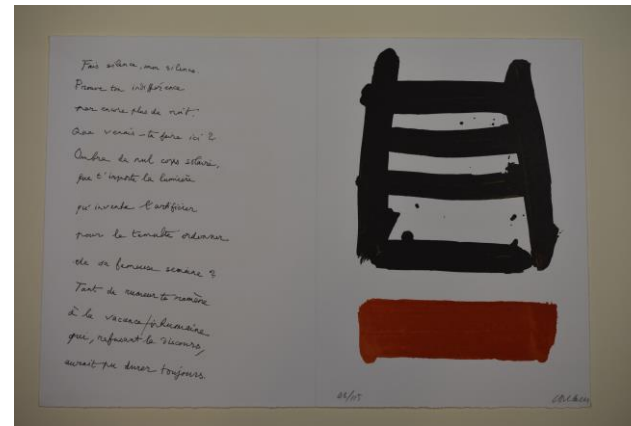 Fais silence, mon silence.
Prouve ton indifférence
par encore plus de nuit.
Que venais-tu faire ici ?
Ombre de nul corps solaire,
que t'importe la lumière
qu'invente l'artificier
pour le tumulte ordonné
de sa fameuse semaine ?
Tant de rumeur te ramène
à la vacance
qui, refusant le discours,
aurait pu durer toujours.
/115